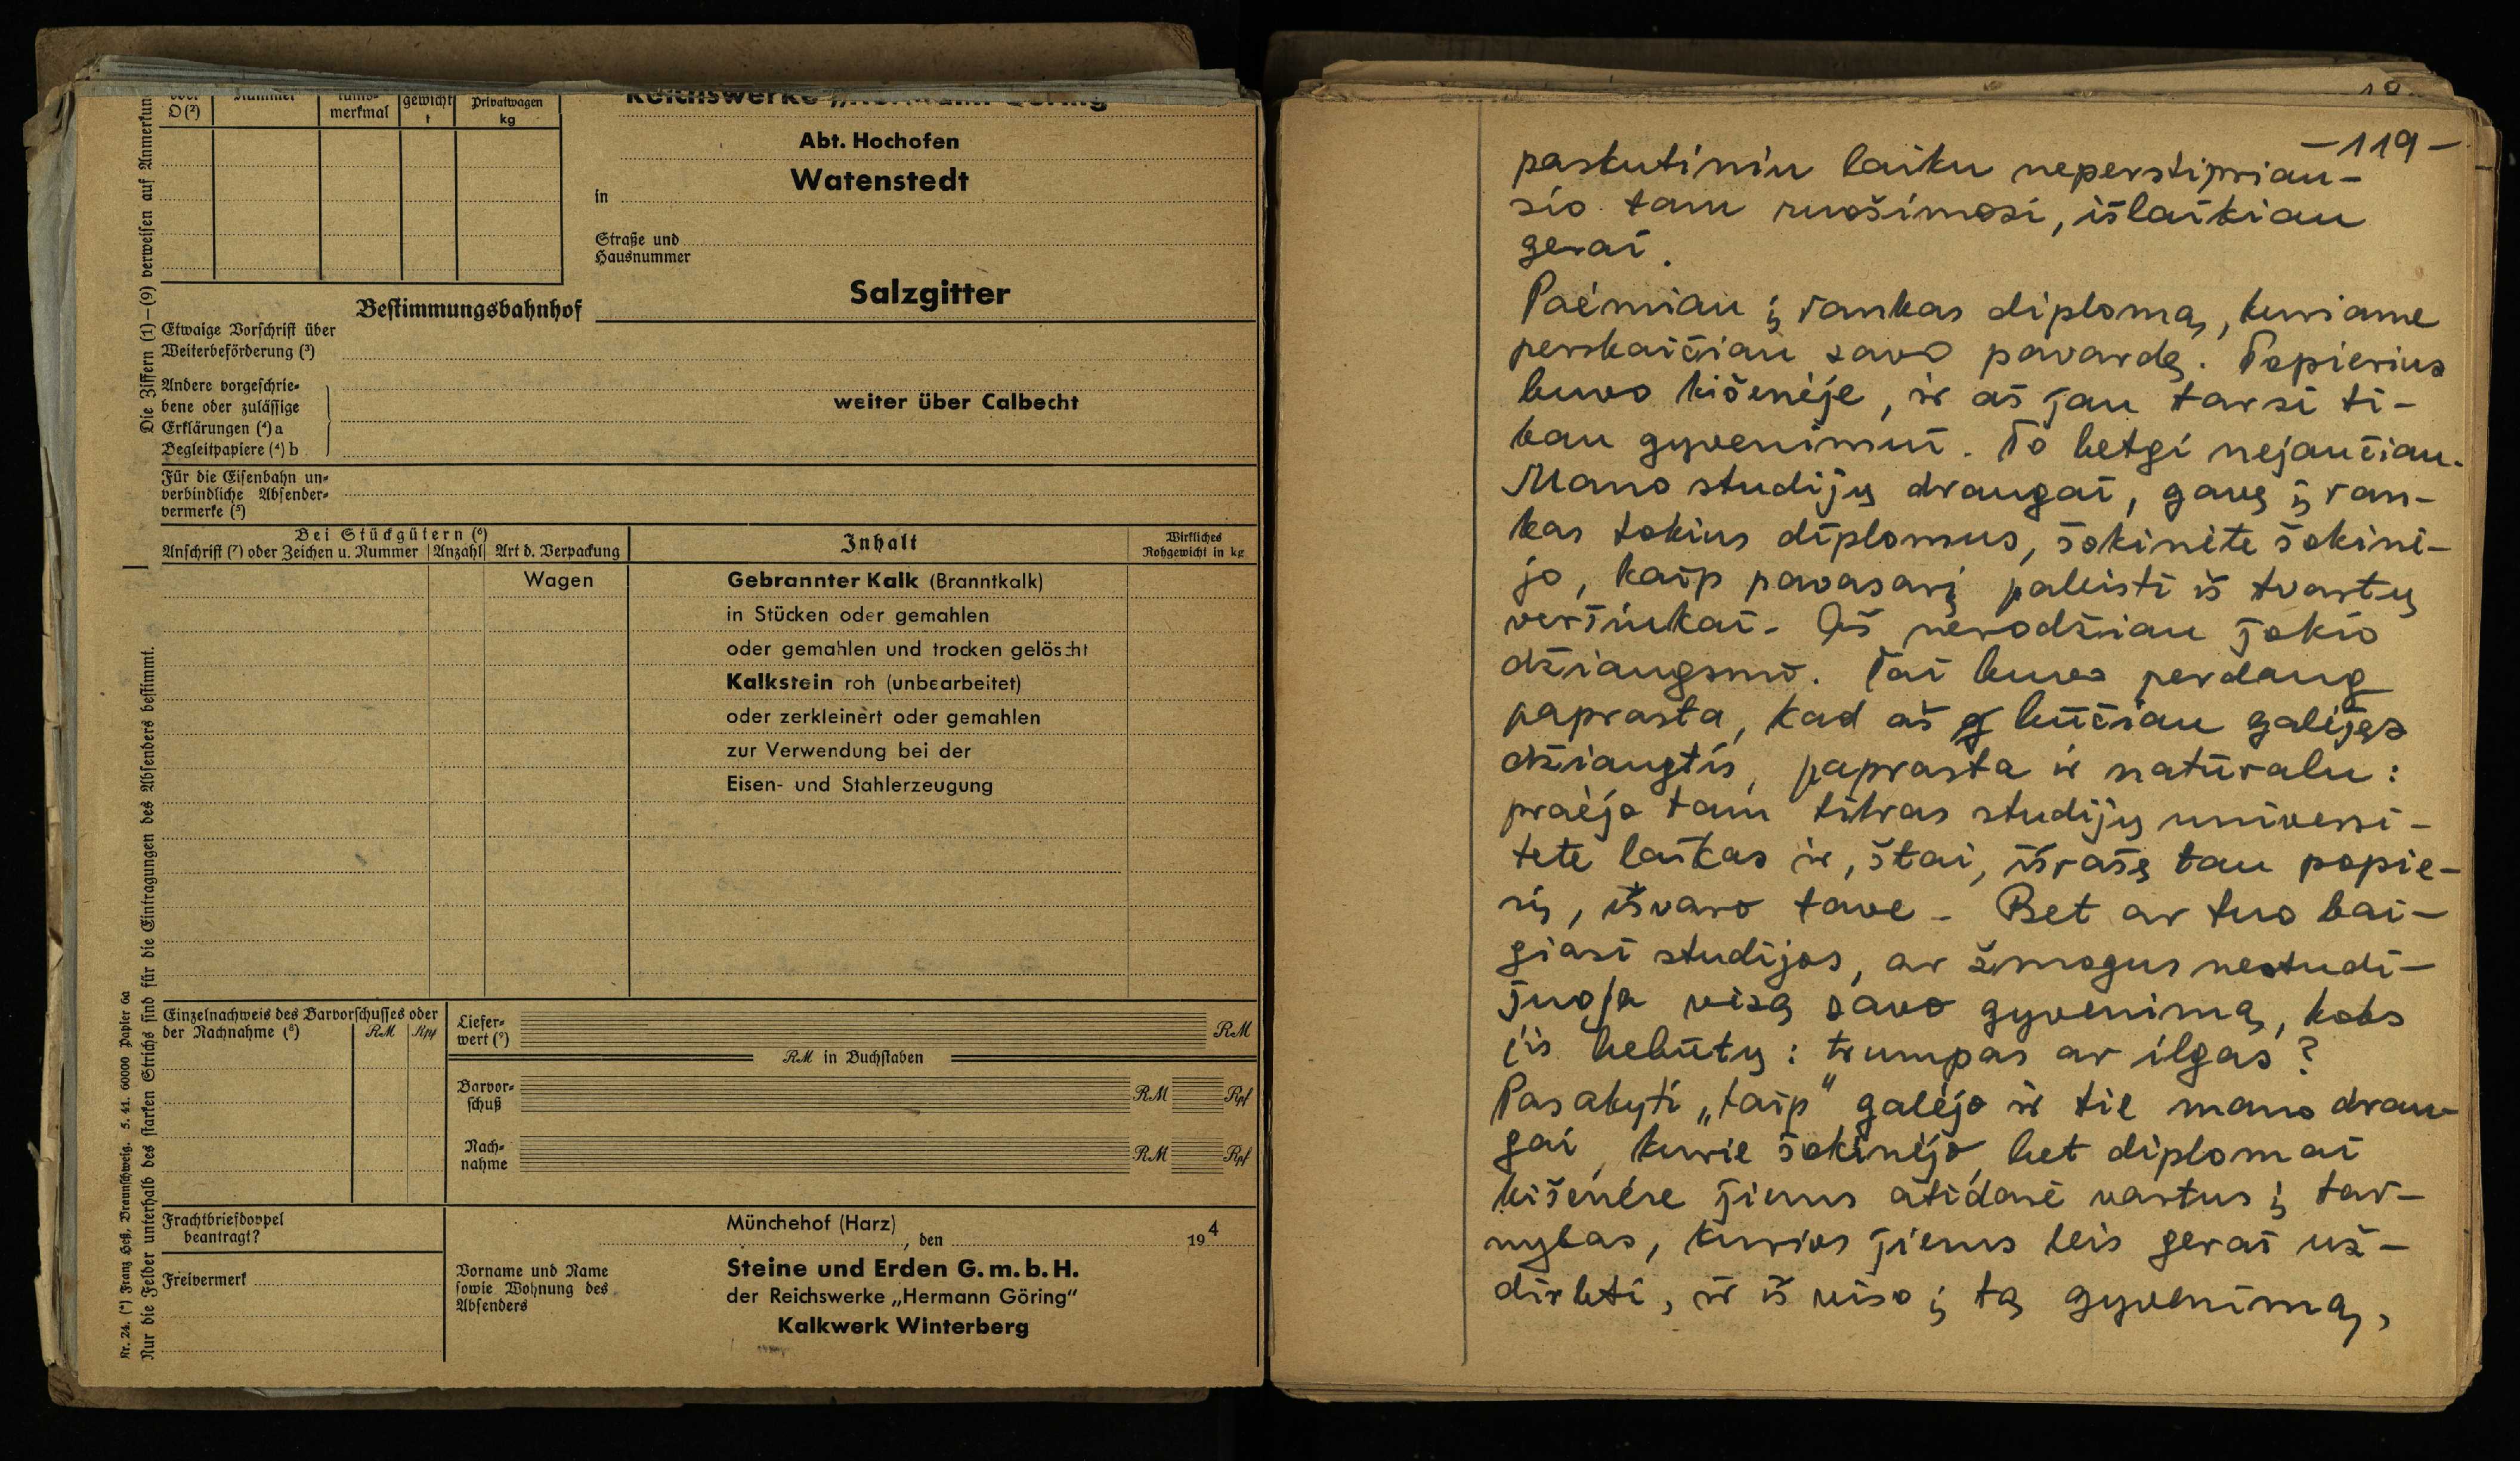 Die Ziffern (1)—(9) verweisen auf Anmerkun
Nur die Felder unterhalb des starken Strichs sind für die Eintragungen des Absenders bestimmt.
Kr. 24. (*) Franz Heß, Braunschweig. 5. 41. 60000 Papier 6a
oder D (²)
Nummer
merkmal
gewicht t
Privatwagen kg
Reichswerke „Hermann Göring
Abt. Hochofen
in Watenstedt
Straße und
Hausnummer
Salzgitter
Bestimmungsbahnhof
Etwaige Vorschrift über
Weiterbeförderung (³)
Andere vorgeschrie-
bene oder zulässige
Erklärungen (⁴) a
Begleitpapiere (⁴) b
weiter über Calbecht
Für die Eisenbahn un-
verbindliche Absender-
vermerke (⁵)
Bei Stückgütern (⁶)
Anschrift (⁷) oder Zeichen u. Nummer
Anzahl
Art d. Verpackung
Inhalt
Wirkliches
Rohgewicht in kg
Wagen
Gebrannter Kalk (Branntkalk)
in Stücken oder gemahlen
oder gemahlen und trocken gelöscht
Kalkstein roh (unbearbeitet)
oder zerkleinert oder gemahlen
zur Verwendung bei der
Eisen- und Stahlerzeugung
Einzelnachweis des Barvorschusses oder
der Nachnahme (⁸)
RM
Rpf
Liefer-
wert (⁹)
RM
RM in Buchstaben
Barvor-
schuß
RM
Rpf
Nach-
nahme
RM
Rpf
Frachtbriefdoppel
beantragt?
Freivermerk
Münchehof (Harz), den 194
Vorname und Name
sowie Wohnung des
Absenders
Steine und Erden G. m. b. H.
der Reichswerke „Hermann Göring"
Kalkwerk Winterberg
—119—
paskutiniu laiku neperstipriau-
sio tam ruošimosi, išlaikiau
gerai.
Paėmiau į rankas diplomą, kuriame
perskaičiau savo pavardę. Popierius
buvo kišenėje, ir aš jau tarsi ti-
kau gyvenimui. To betgi nejaučiau.
Mano studijų draugai, gavę į ran-
kas tokius diplomus, šokinėte šokinė-
jo, kaip pavasarį paleisti iš tvartų
veršiukai. Aš nerodžiau jokio
džiaugsmo. Tai buvo perdaug
paprasta, kad aš būčiau galėjęs
džiaugtis, paprasta ir natūralu:
praėjo tam tikras studijų universi-
tete laikas ir, štai, išrašę tau popie-
rių, išvaro tave. Bet ar tuo bai-
giasi studijos, ar žmogus nestudi-
juoja visą savo gyvenimą, koks
jis bebūtų: trumpas ar ilgas?
Pasakyti „taip" galėjo ir tie mano drau-
gai, kurie šokinėjo, bet diplomai
kišenėse jiems atidarė vartus į tar-
nybas, kurios jiems leis gerai už-
dirbti, ir iš viso į tą gyvenimą,